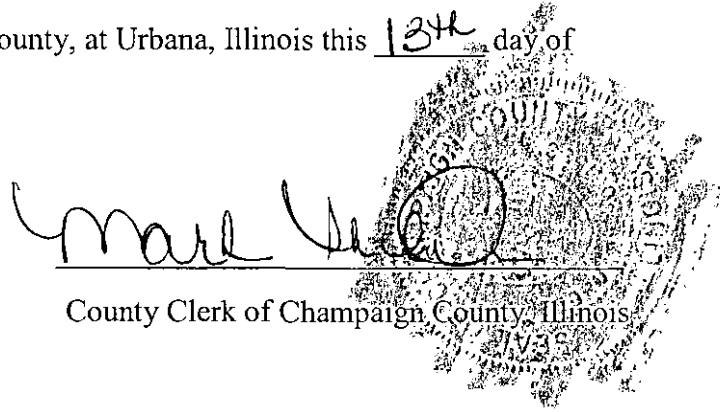 ounty, at Urbana, Illinois this 13th day of
Mark
County Clerk of Champaign County, Illinois
COUNTY
SEAL